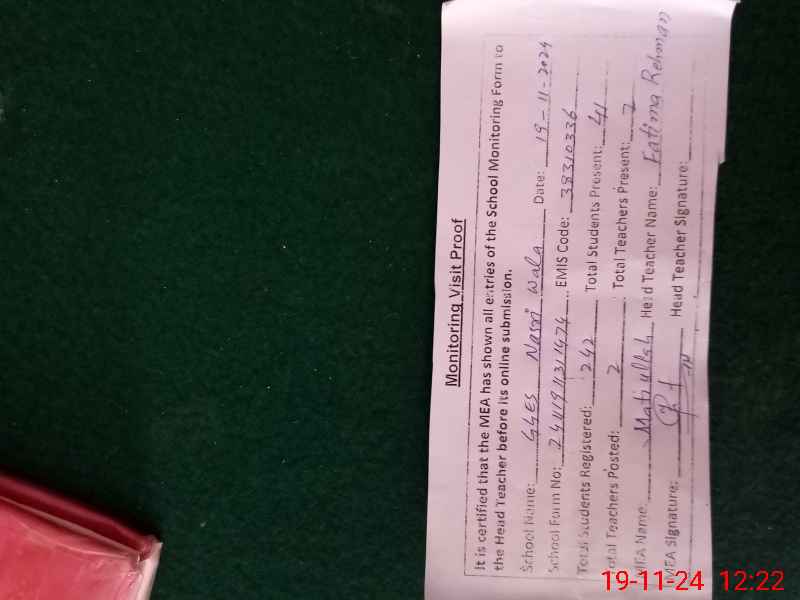 Monitoring Visit Proof
It is certified that the MEA has shown all entries of the School Monitoring Form to
the Head Teacher before its online submission.
School Name: GGES Nasri Wala Date: 19-11-2024
School Form No: EMIS Code: 38310336
Total Students Registered: 242 Total Students Present: 41
Total Teachers Posted: 2 Total Teachers Present: 2
MEA Name: Matiullah Head Teacher Name: Fatima Rehman
MEA Signature: Head Teacher Signature:
19-11-24 12:22